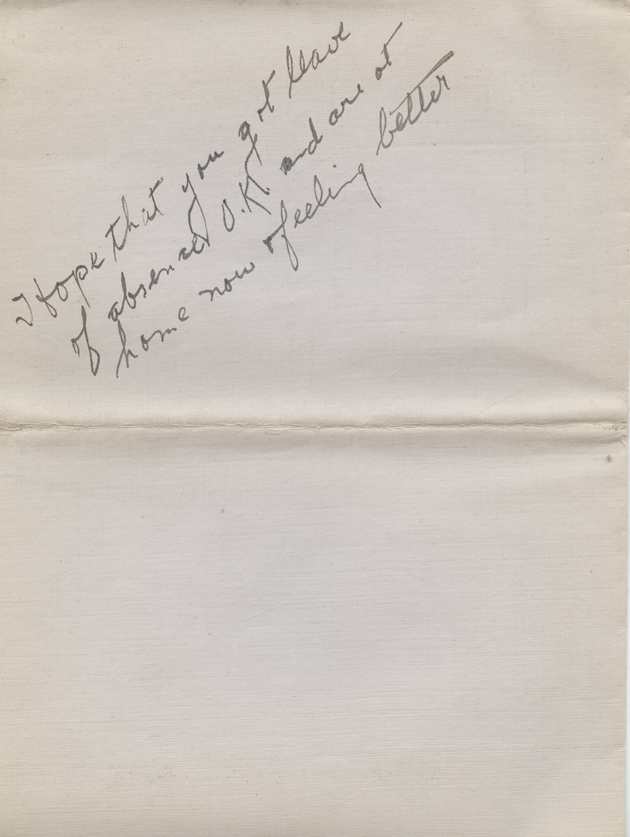 I Hope that you got leave
of absence O.K. and are at
home now feeling better